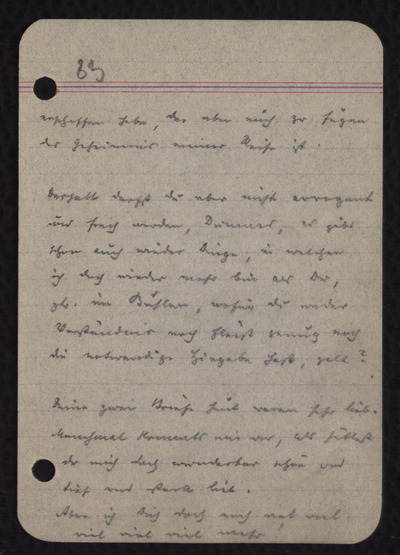 89
erschaffen habe, das aber auch zu sagen
das Geheimnis meiner Reise ist.
Deshalb darfst du aber nicht arrogant
und frech werden, Dummes, es gibt
schon auch wieder Dinge, in welchen
ich doch wieder mehr bin als Du,
z.B. im Kuscheln, wofür du weder
Verständnis noch Fleiß genug noch
die notwendige Hingabe hast, gelt?
Deine zwei Briefe heut waren sehr lieb.
Manchmal kommts mir vor, als hättest
du mich doch wunderbar schön und
tief und stark lieb.
Aber ich Dich doch noch viel viel
viel viel viel mehr